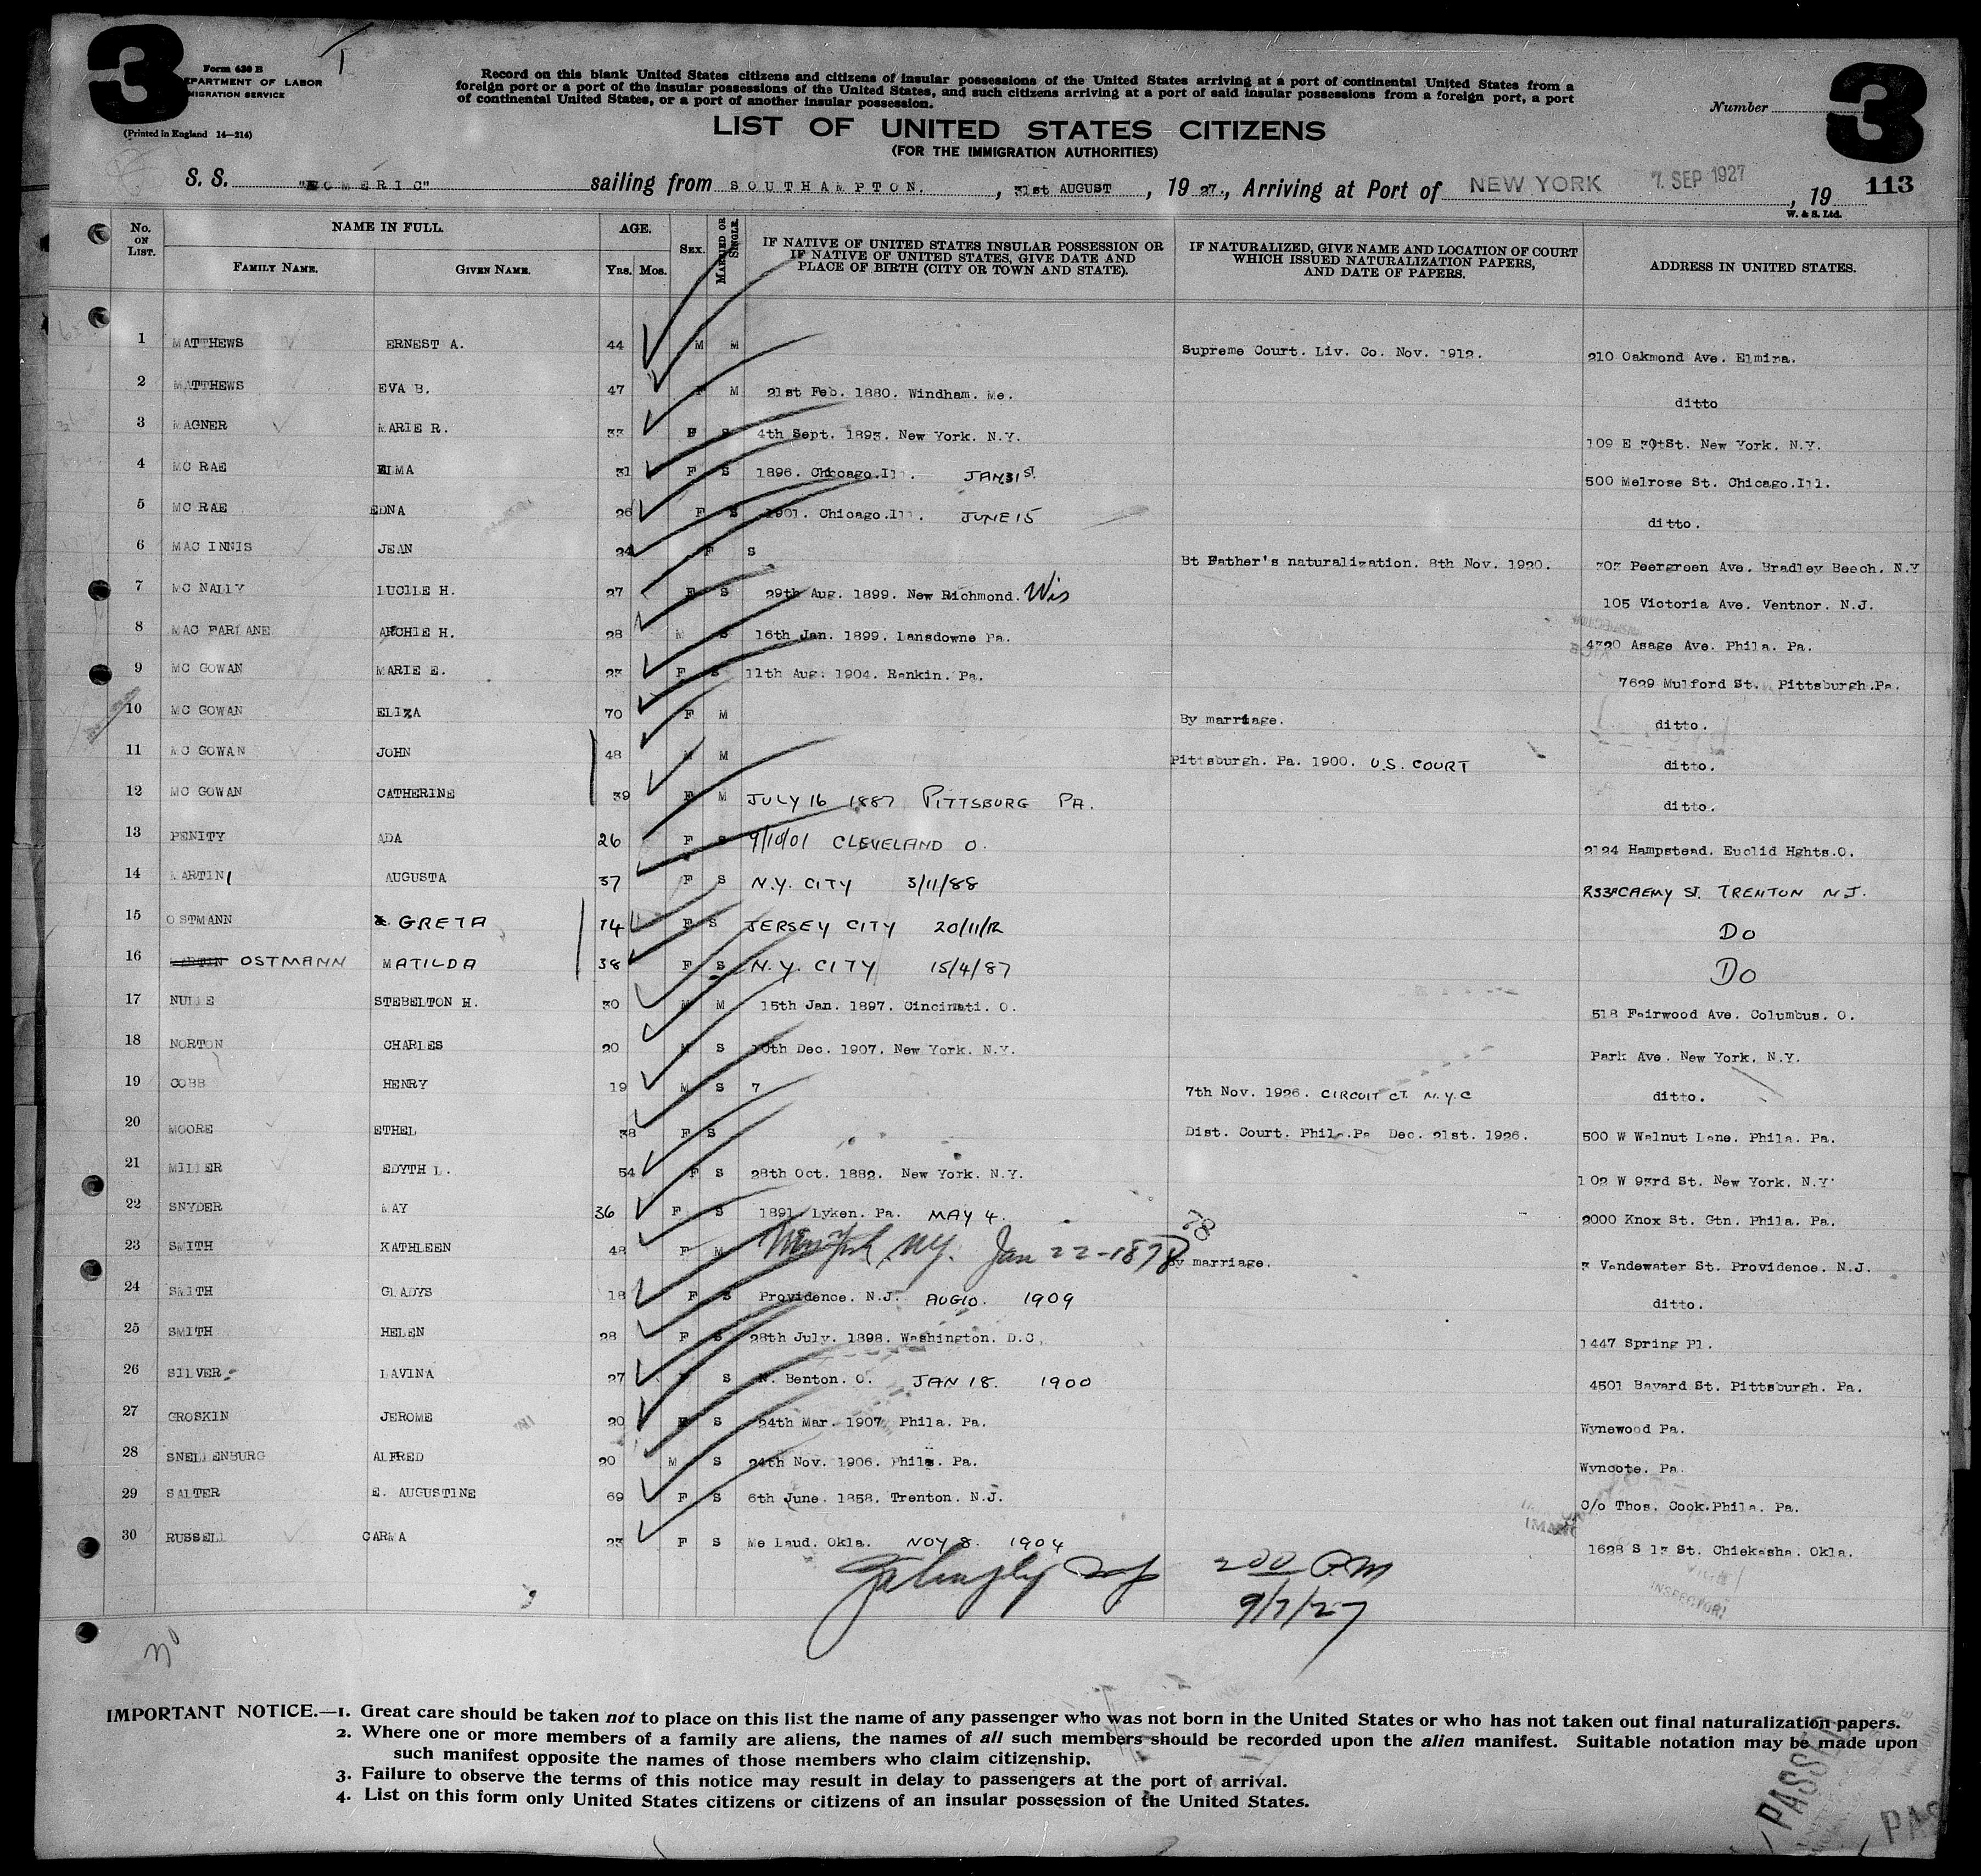 3
Form 630 B
DEPARTMENT OF LABOR
IMMIGRATION SERVICE
(Printed in England 14—214)
Record on this blank United States citizens and citizens of insular possessions of the United States arriving at a port of continental United States from a
foreign port or a port of the insular possessions of the United States, and such citizens arriving at a port of said insular possessions from a foreign port, a port
of continental United States, or a port of another insular possession.
Number
3
LIST OF UNITED STATES CITIZENS
(FOR THE IMMIGRATION AUTHORITIES)
S. S. "HOMERIC" sailing from SOUTHAMPTON. , 31st AUGUST , 19 27., Arriving at Port of NEW YORK 7. SEP 1927 , 19 113
W. & S. Ltd.
No. ON LIST. NAME IN FULL. AGE. SEX. MARRIED OR SINGLE. IF NATIVE OF UNITED STATES INSULAR POSSESSION OR IF NATIVE OF UNITED STATES, GIVE DATE AND PLACE OF BIRTH (CITY OR TOWN AND STATE). IF NATURALIZED, GIVE NAME AND LOCATION OF COURT WHICH ISSUED NATURALIZATION PAPERS, AND DATE OF PAPERS. ADDRESS IN UNITED STATES.
FAMILY NAME. GIVEN NAME. YRS. MOS.
1 MATTHEWS ERNEST A. 44 M M Supreme Court. Liv. Co. Nov. 1912. 210 Oakmond Ave. Elmira.
2 MATTHEWS EVA B. 47 F M 21st Feb. 1880. Windham. Me. ditto
3 MAGNER MARIE R. 33 F S 4th Sept. 1893. New York. N.Y. 109 E 30tSt. New York. N.Y.
4 MC RAE ELMA 31 F S 1896. Chicago.Ill. JAN 31st 500 Melrose St. Chicago.Ill.
5 MC RAE EDNA 26 F S 1901. Chicago.Ill. JUNE 15 ditto.
6 MAC INNIS JEAN 24 F S Bt Father's naturalization. 8th Nov. 1920. 303 Peergreen Ave. Bradley Beech. N.Y
7 MC NALLY LUCILE H. 27 F S 29th Aug. 1899. New Richmond. Wis 105 Victoria Ave. Ventnor. N.J.
8 MAC FARLANE ARCHIE H. 28 M S 16th Jan. 1899. Lansdowne Pa. 4320 Asage Ave. Phila. Pa.
9 MC GOWAN MARIE E. 23 F S 11th Aug. 1904. Rankin. Pa. 7629 Mulford St. Pittsburgh.Pa.
10 MC GOWAN ELIZA 70 F M By marriage. ditto.
11 MC GOWAN JOHN 48 M M Pittsburgh. Pa. 1900. U.S. COURT ditto.
12 MC GOWAN CATHERINE 39 F M JULY 16 1887 PITTSBURG PA. ditto.
13 PENITY ADA 26 F S 9/10/01 CLEVELAND O. 2124 Hampstead. Euclid Hghts.O.
14 MARTINI AUGUSTA 37 F S N.Y. CITY 3/11/88 ST. TRENTON N.J.
15 OSTMANN GRETA 14 F S JERSEY CITY 20/11/12 DO
16 OSTMANN MATILDA 38 F S N.Y. CITY 15/4/87 DO
17 STEBELTON H. 30 M M 15th Jan. 1897. Cincinnati. O. 518 Fairwood Ave. Columbus. O.
18 NORTON CHARLES 20 M S 10th Dec. 1907. New York. N.Y. Park Ave. New York. N.Y.
19 COBB HENRY 19 M S 7 7th Nov. 1926. CIRCUIT CT. N.Y.C ditto.
20 MOORE ETHEL 38 F S Dist. Court. Phila.Pa Dec. 21st. 1926. 500 W Walnut Lane. Phila. Pa.
21 MILLER EDYTH L. 54 F S 28th Oct. 1882. New York. N.Y. 102 W 93rd St. New York. N.Y
22 SNYDER MAY 36 F S 1891. Lyken. Pa. MAY 4. 2000 Knox St. Gtn. Phila. Pa.
23 SMITH KATHLEEN 48 F M New York N.Y. Jan 22-1878 78 By marriage. 3 Vandewater St. Providence. N.J.
24 SMITH GLADYS 18 F S Providence. N.J. AUG 10. 1909 ditto.
25 SMITH HELEN 28 F S 28th July. 1898. Washington. D.C. 1447 Spring Pl.
26 SILVER LAVINA 27 F S N. Benton. O. JAN 18. 1900 4501 Bayard St. Pittsburgh. Pa.
27 GROSKIN JEROME 20 S 24th Mar. 1907 Phila. Pa. Wynewood Pa.
28 SNELLENBURG ALFRED 20 M S 24th Nov. 1906. Phila. Pa. Wyncote. Pa.
29 SALTER E. AUGUSTINE 69 F S 6th June. 1858. Trenton. N.J. C/o Thos. Cook.Phila. Pa.
30 RUSSELL CARMA 23 F S Me Laud. Okla. NOV 8. 1904 1628 S 13 St. Chickasha. Okla.
200 P.M
9/7/27
INSPECTOR
IMPORTANT NOTICE.—1. Great care should be taken not to place on this list the name of any passenger who was not born in the United States or who has not taken out final naturalization papers.
2. Where one or more members of a family are aliens, the names of all such members should be recorded upon the alien manifest. Suitable notation may be made upon
such manifest opposite the names of those members who claim citizenship.
3. Failure to observe the terms of this notice may result in delay to passengers at the port of arrival.
4. List on this form only United States citizens or citizens of an insular possession of the United States.
PASSED
PAS